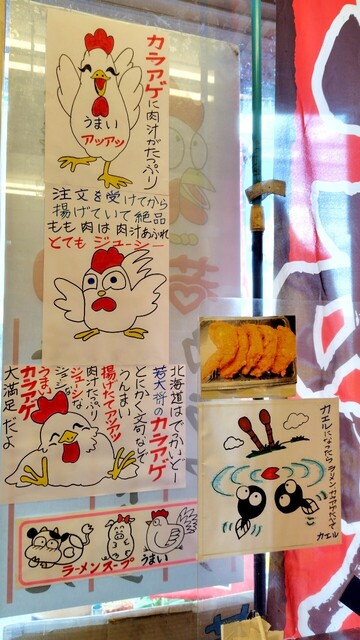 カラアゲに肉汁がたっぷり
うまい
アッアッ
注文を受けてから
揚げていて絶品
もも肉は肉汁あふれ
とても ジューシー
北海道はでっかいどー
若大将のカラアゲ
とにかく文句なしで
うんまい
揚げたてアッアッ
肉汁たっぷり
ジューシーな
カラアゲ
うまい
大満足だよ
ラーメンスープ
うまい
カエルになったら
ラーメンカラアゲたべて
カエル